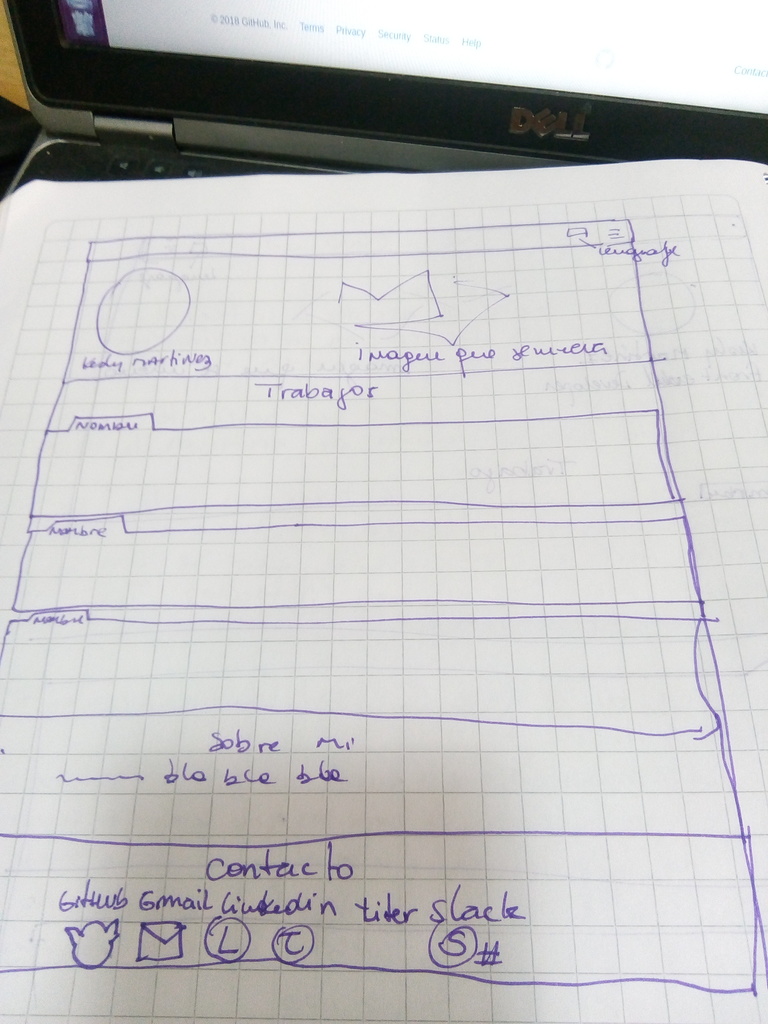 © 2018 GitHub, Inc. Terms Privacy Security Status Help
Contact
DELL
lenguaje
Leidy Martinez
imagen que se mueva
Trabajos
Nombre
Nombre
Nombre
Sobre mi
bla bla bla
Contacto
GitHub Gmail Linkedin titer Slack
L T S #